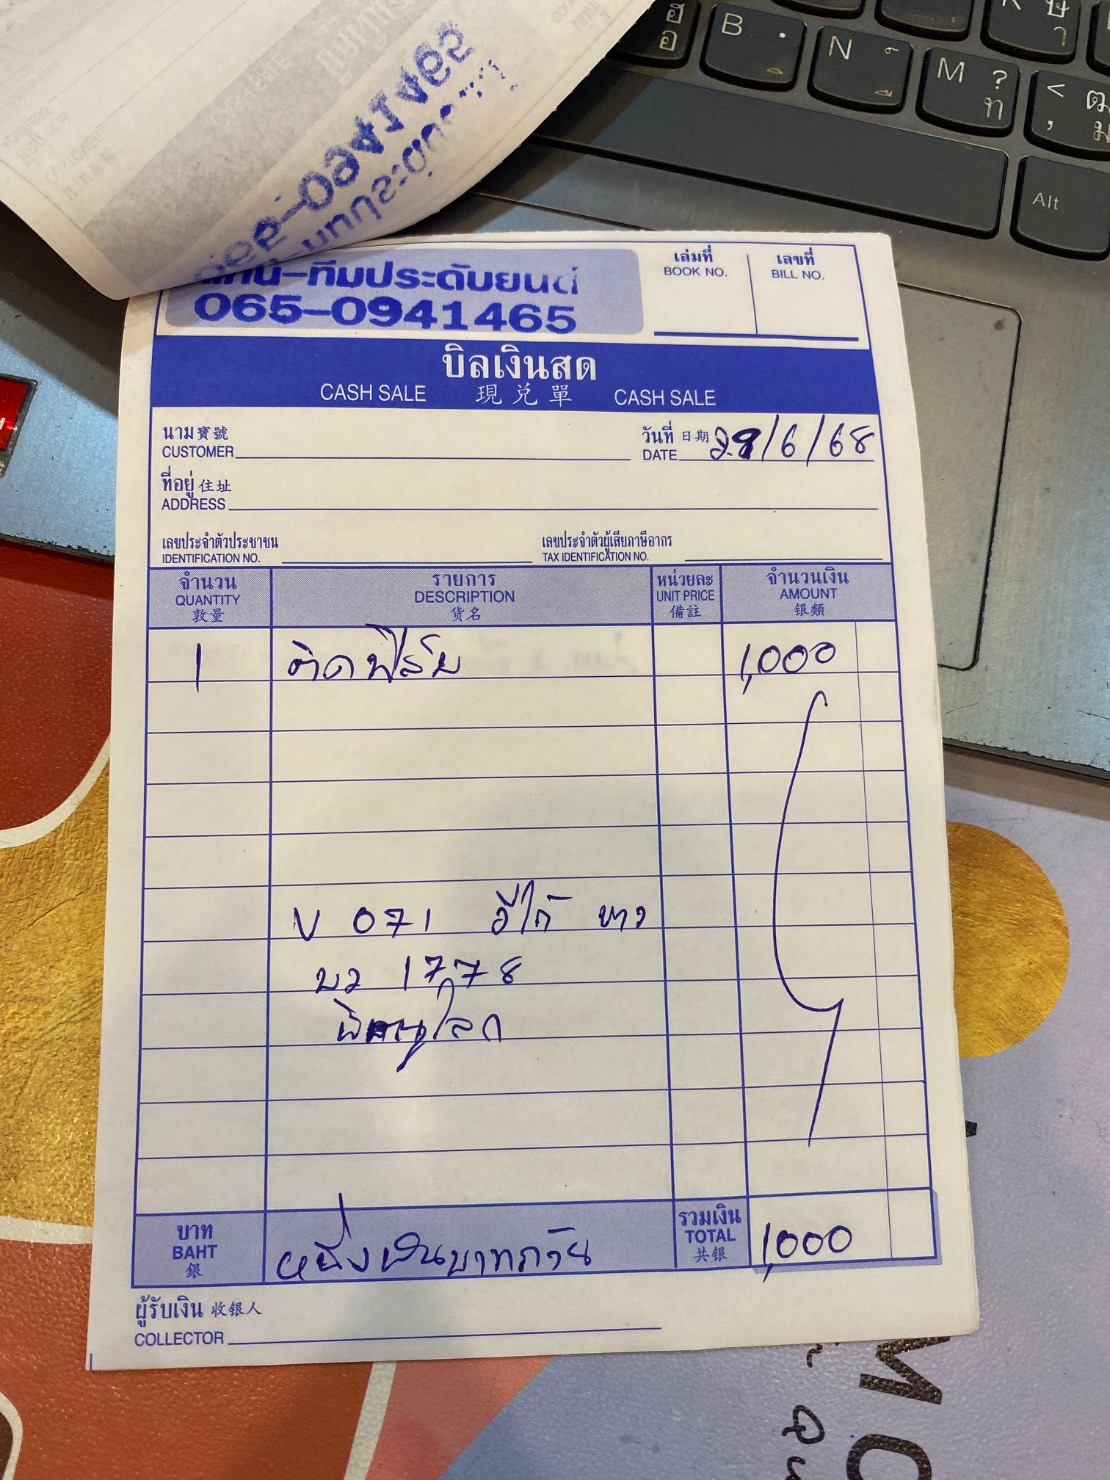 –ทีมประดับยนต์
065-0941465
เล่มที่
BOOK NO.
เลขที่
BILL NO.
บิลเงินสด
CASH SALE 現兑單 CASH SALE
นาม寶號
CUSTOMER
วันที่ 日期
DATE /6/68
ที่อยู่ 住址
ADDRESS
เลขประจำตัวประชาชน
IDENTIFICATION NO.
เลขประจำตัวผู้เสียภาษีอากร
TAX IDENTIFICATION NO.
จำนวน
QUANTITY
敦量
รายการ
DESCRIPTION
货名
หน่วยละ
UNIT PRICE
備註
จำนวนเงิน
AMOUNT
银類
1 ติดฟิล์ม 1,000
V 071 อีโก้ ขาว
บว 1778
พิษณุโลก
บาท
BAHT
銀
หนึ่งพันบาทถ้วน
รวมเงิน
TOTAL
共银
1,000
ผู้รับเงิน 收银人
COLLECTOR
B
N
M ?
ท
Alt